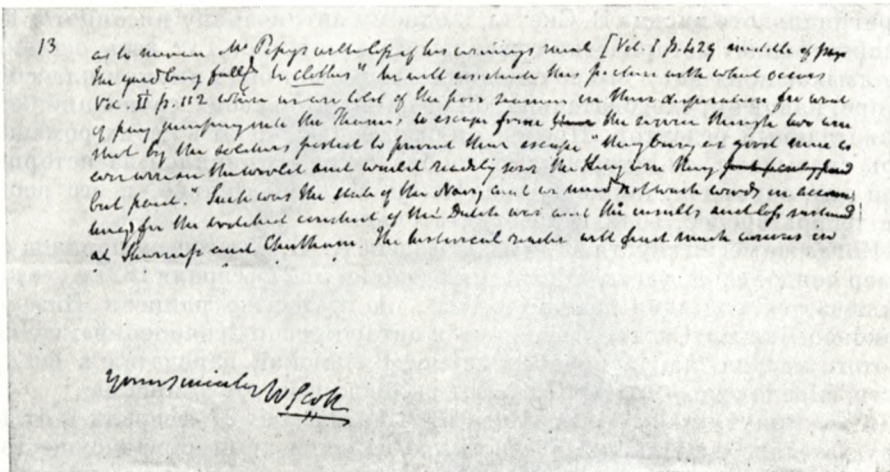 13
as to Mr Pepys with loss of his evenings meal [Vol. I p. 429 middle of page
the being full to clothes" We will conclude this picture with what occurs
Vol. II p. 112 where we are told of the poor seamen in their desperation for want
of pay jumping into the Thames to escape from the service though two were
shot by the soldiers posted to prevent their escape "they being as good men as
ever were in the world and would readily serve the King were they
but paid." Such was the state of the Navy and we need not waste words in accoun
ting for the wretched conduct of the Dutch war and the insults and loss sustaind
at Sheerness and Chatham. The historical reader will find much curious in
Yours sincerely W Scott